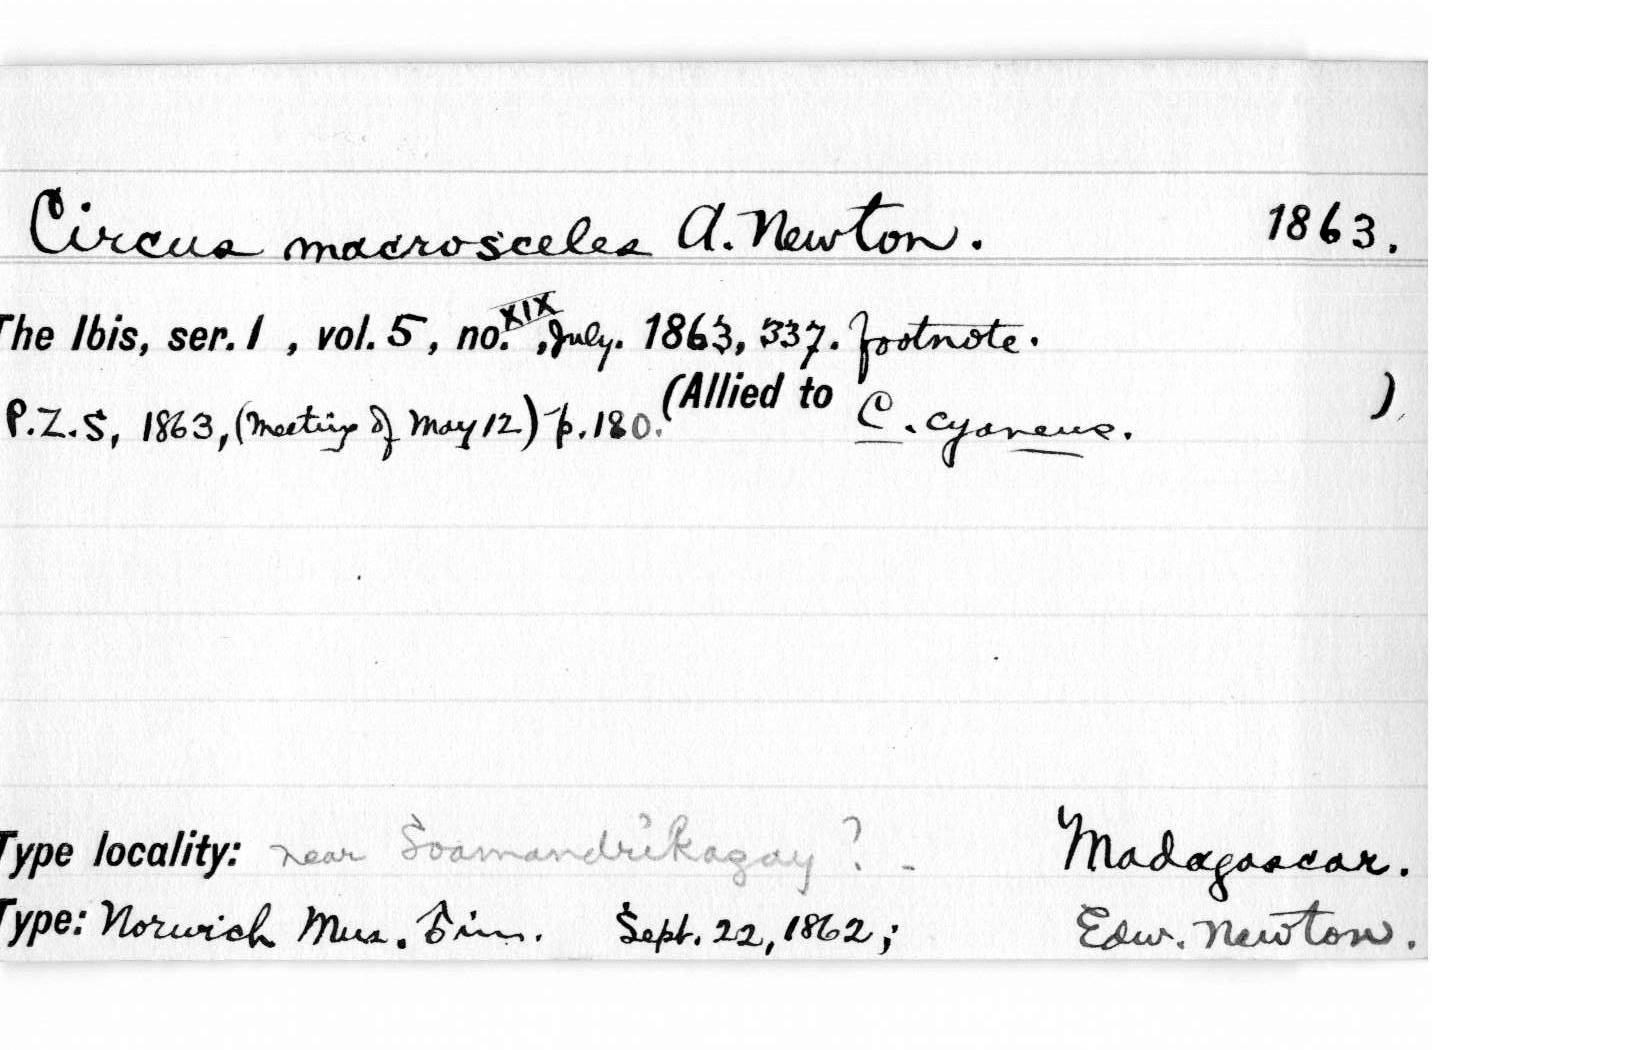 Circus macrosceles A. Newton. 1863.
The Ibis, ser. 1, vol. 5, no. XIX, July. 1863, 337. footnote.
(Allied to C. cyaneus. )
P.Z.S, 1863, (Meeting of May 12) p. 180.
Type locality: near Soamandrikazay ? - Madagascar.
Type: Norwich Mus. Sept. 22, 1862; Edw. Newton.